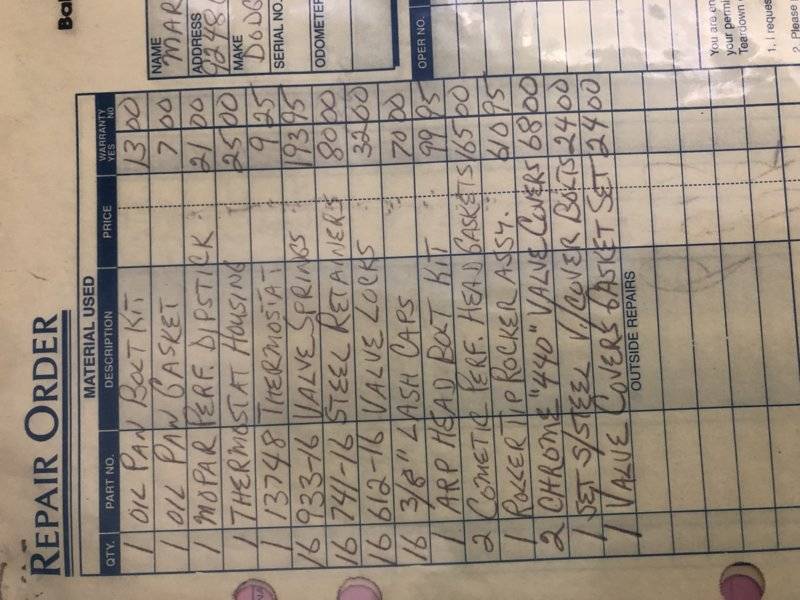 Bal
REPAIR ORDER
MATERIAL USED
QTY. PART NO. DESCRIPTION PRICE WARRANTY YES NO
1 OIL PAN BOLT KIT 13 00
1 OIL PAN GASKET 7 00
1 MOPAR PERF. DIPSTICK 21 00
1 THERMOSTAT HOUSING 25 00
1 13748 THERMOSTAT 9 25
16 933-16 VALVE SPRINGS 193 95
16 741-16 STEEL RETAINERS 80 00
16 612-16 VALVE LOCKS 32 00
16 3/8" LASH CAPS 70 00
1 ARP HEAD BOLT KIT 99 95
2 COMETIC PERF. HEAD GASKETS 165 00
1 ROLLER TIP ROCKER ASSY. 610 95
2 CHROME "440" VALVE COVERS 68 00
1 SET S/STEEL V./COVER BOLTS 24 00
1 VALVE COVERS GASKET SET 24 00
OUTSIDE REPAIRS
NAME
MAR
ADDRESS
9248
MAKE
DODG
SERIAL NO.
ODOMETER
OPER NO.
You are en
your permi
Teardown
1. I reques
2. Please